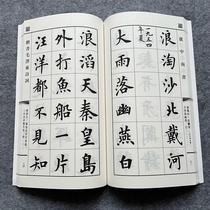 浪淘沙北戴河
一九五四
年夏
大雨落幽燕白
浪滔天秦皇島
外打魚船一片
汪洋都不見知